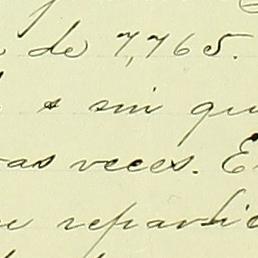 de 7,765.
s sin qu
as veces. E
e reparti